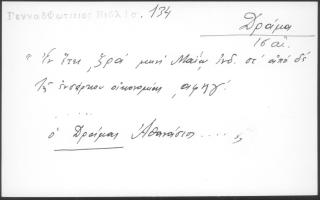 Γενναδ Φωτιτσας Βιβλίο. 134
Δράμα
16 αἰ.
"Ἐν ἔτει, ξρα' μηνὶ Μαΐῳ ἰνδ. στ' ἀπὸ δὲ
τῆς ἐνσάρκου οἰκονομίας, αφϞγ'.
......
ὁ Δράμας Ἀθανάσιος .... "